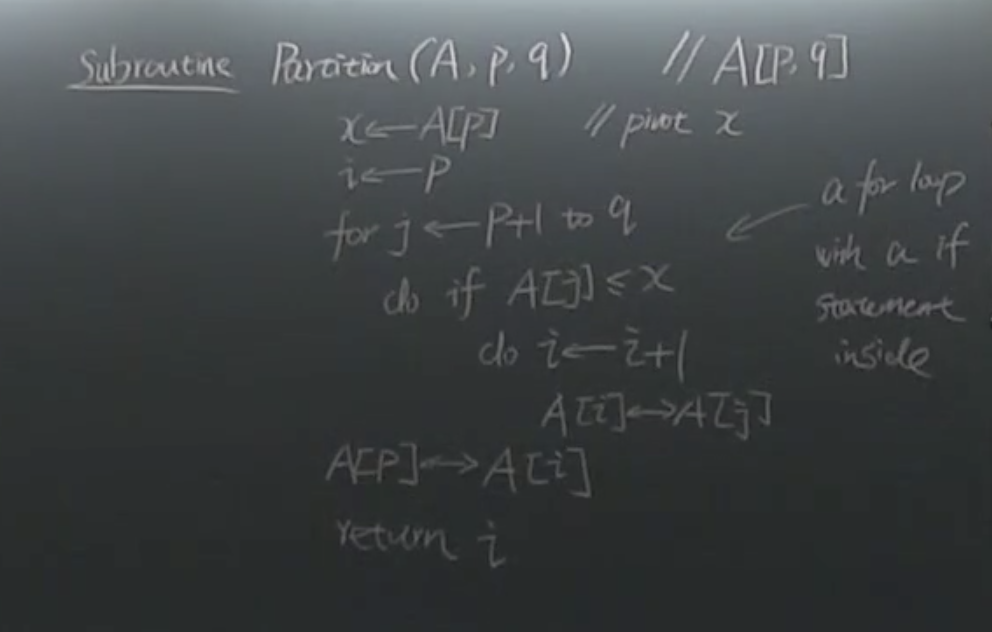 Subroutine Partition (A, p, q) // A[p, q]
x ← A[p] // pivot x
i ← p
for j ← p+1 to q
do if A[j] ≤ x
do i ← i+1
A[i] ↔ A[j]
A[p] ↔ A[i]
return i
a for loop
with a if
statement
inside